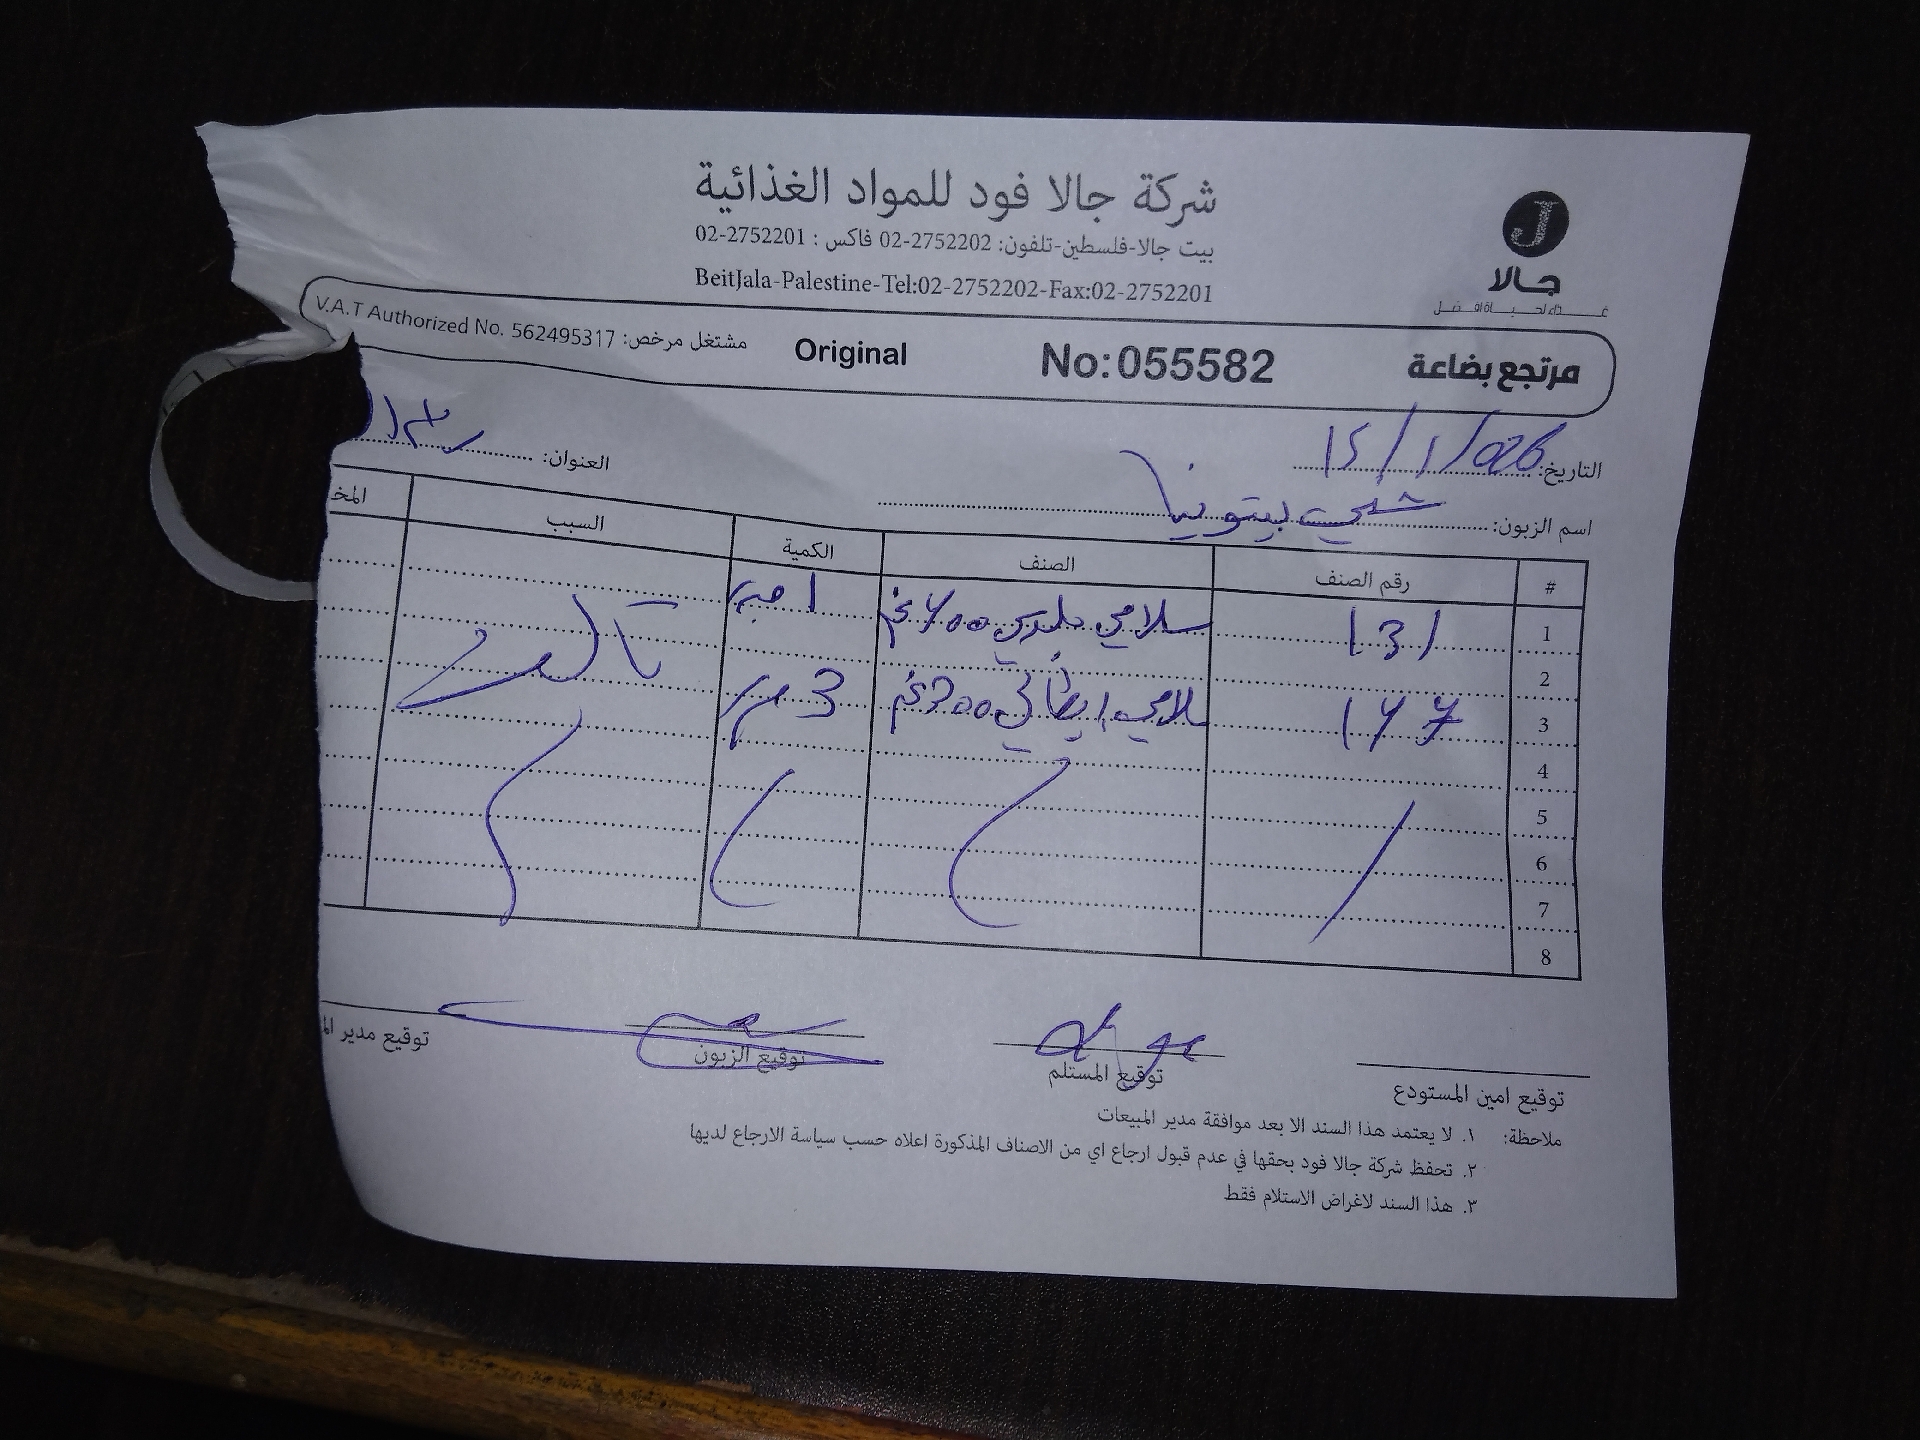 شركة جالا فود للمواد الغذائية
بيت جالا-فلسطين-تلفون: 02-2752202 فاكس : 02-2752201
BeitJala-Palestine-Tel:02-2752202-Fax:02-2752201
J
جالا
مرتجع بضاعة No:055582 Original مشتغل مرخص: V.A.T Authorized No. 562495317
التاريخ: 15/1/026 العنوان:
اسم الزبون: بيتونيا
# رقم الصنف الصنف الكمية السبب المخ
1 131 سلامي بلدي 700غم 1
2
3 177 سلامي ايطالي 300غم 3
4
5
6
7
8
توقيع امين المستودع توقيع المستلم توقيع الزبون توقيع مدير الم
ملاحظة: ١. لا يعتمد هذا السند الا بعد موافقة مدير المبيعات
٢. تحفظ شركة جالا فود بحقها في عدم قبول ارجاع اي من الاصناف المذكورة اعلاه حسب سياسة الارجاع لديها
٣. هذا السند لاغراض الاستلام فقط